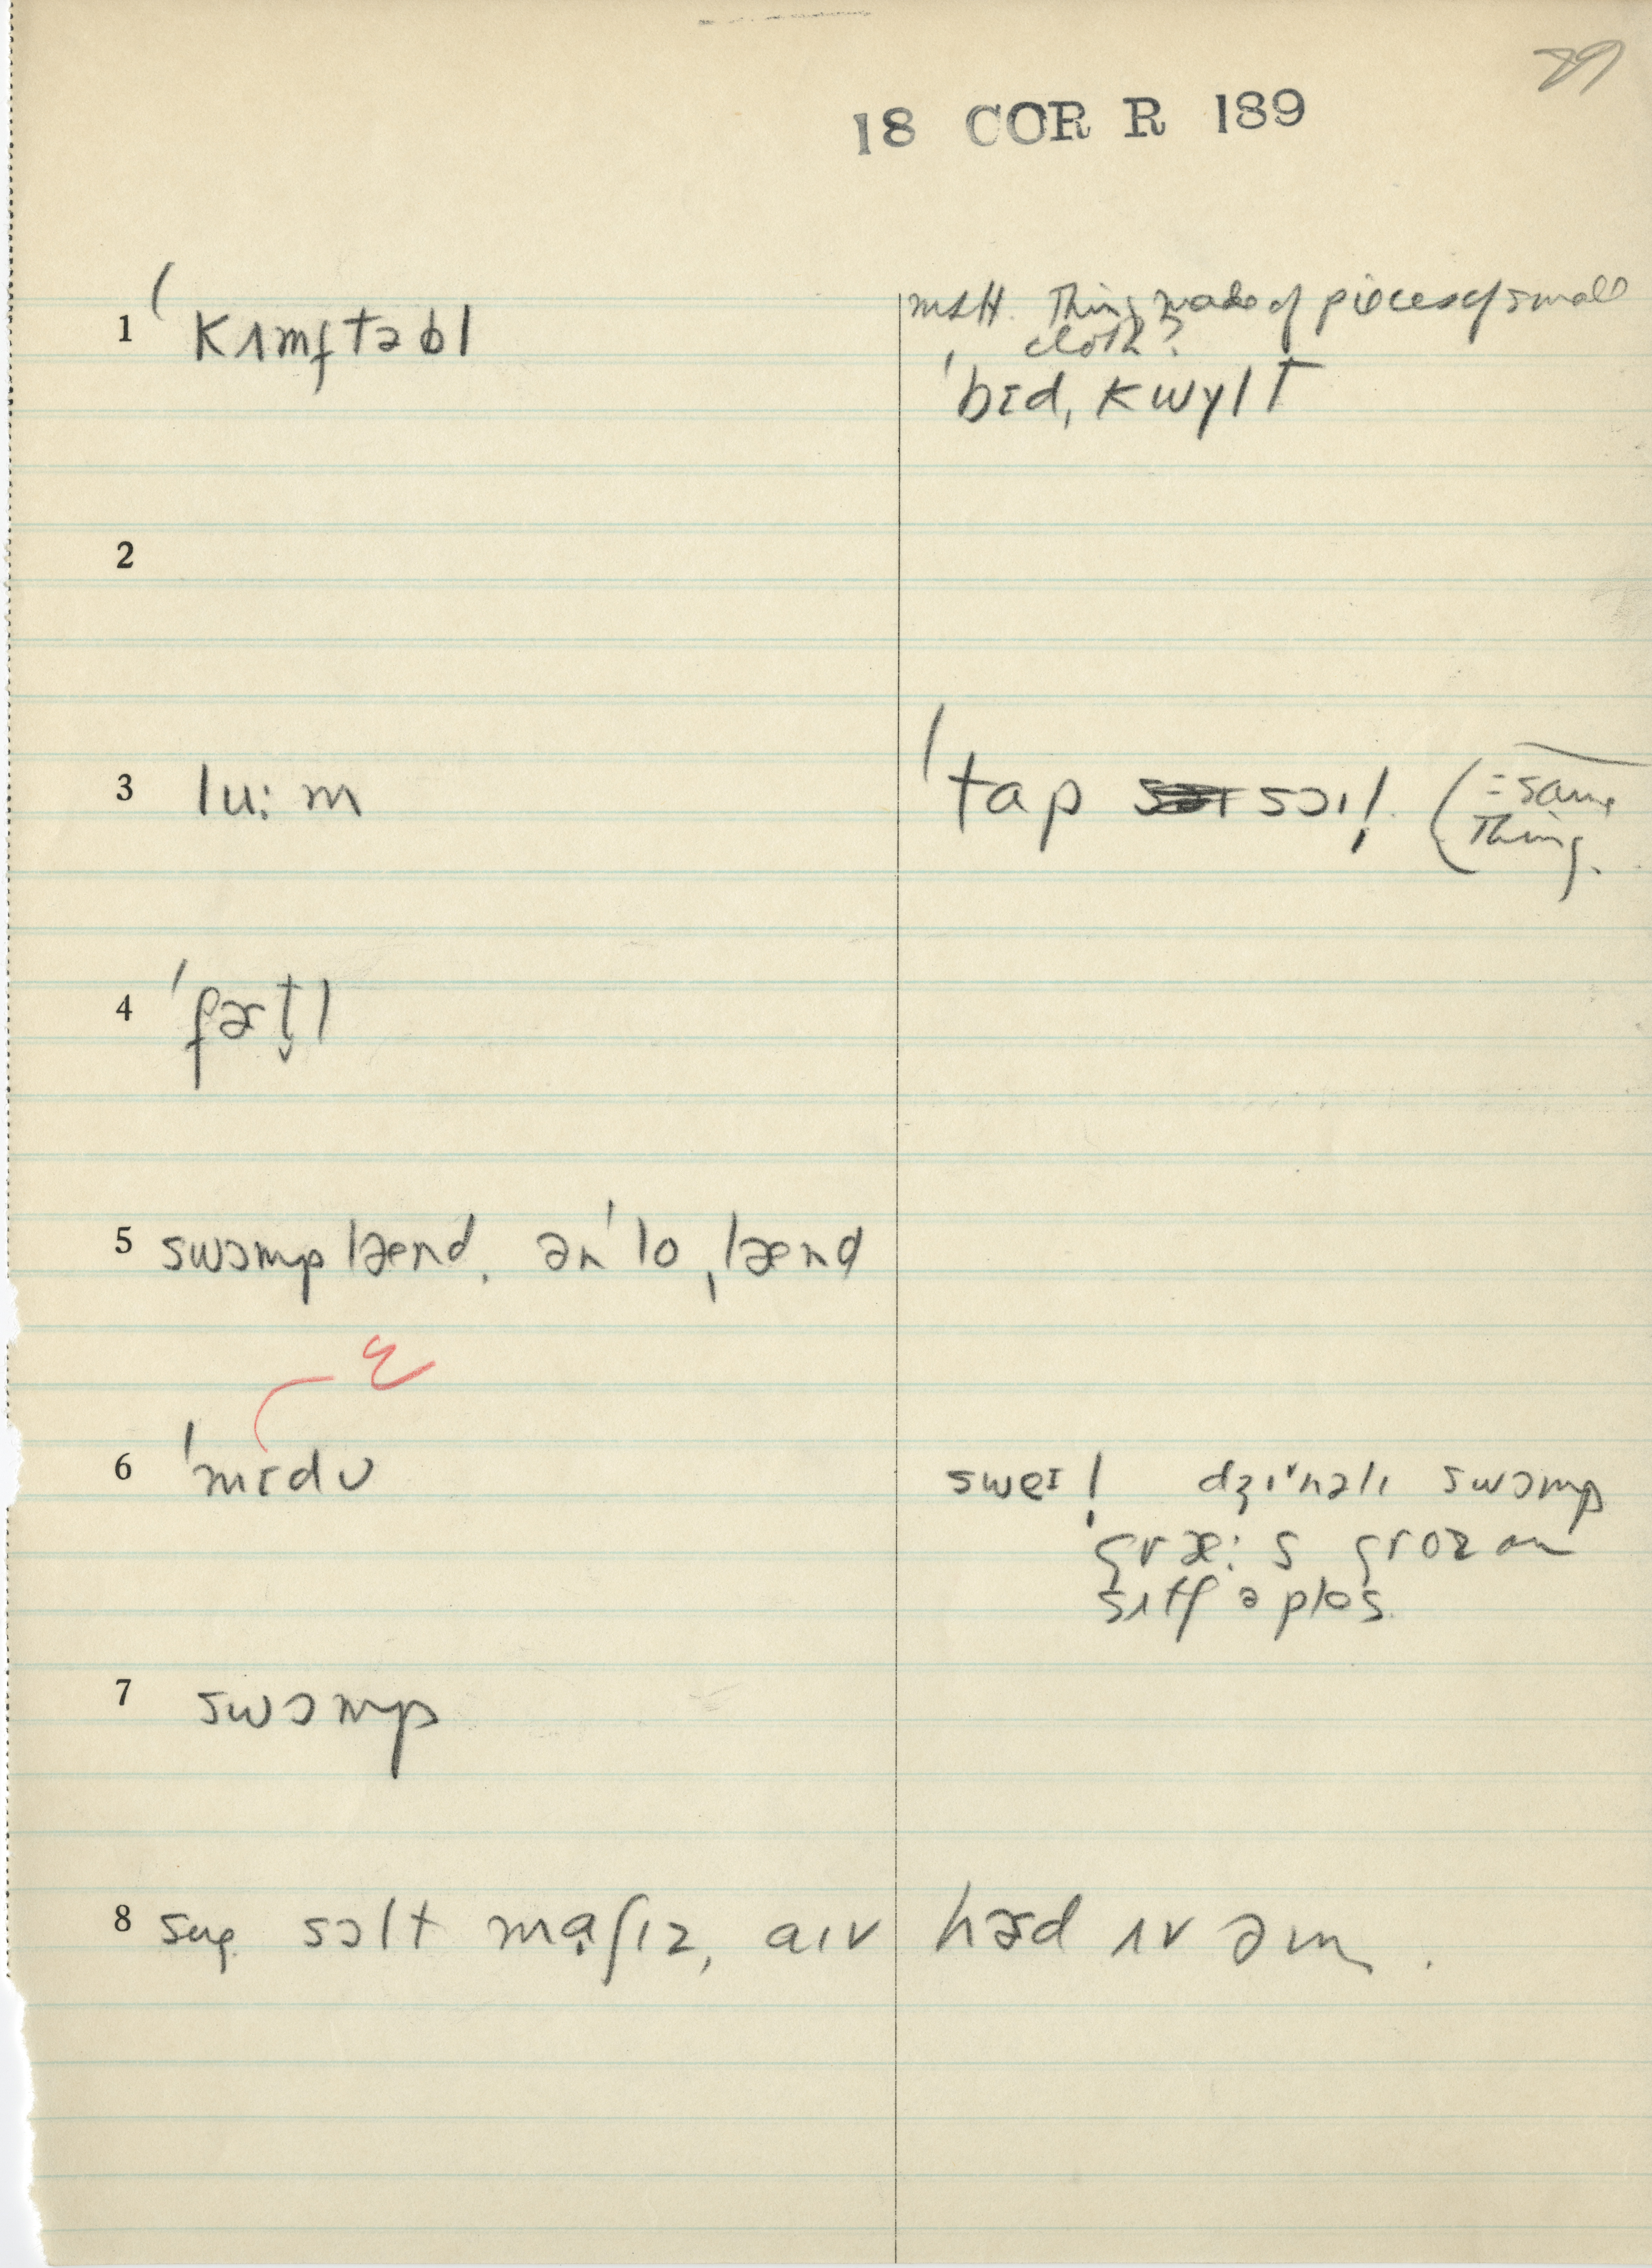 89
18 COR R 189
1 ˈkʌmftəbl
Thing made of pieces of small
cloth?
ˈbɛd, kwɪlt
2
3 lu:m
ˈtap sɔɪl (=same
Thing.
4 ˈfɚt̬l
5 swɔmp lænd, ənˈlo ˌlænd
ɛ
6 ˈmɪdʊ
sweɪl dʒɪˈnəlɪ swɔmp
græ:s groz ɔn
sʌtʃ ə ples
7 swɔmp
8 sug. sɔlt mɑʃɪz, aɪv hɚd ʌv əm.